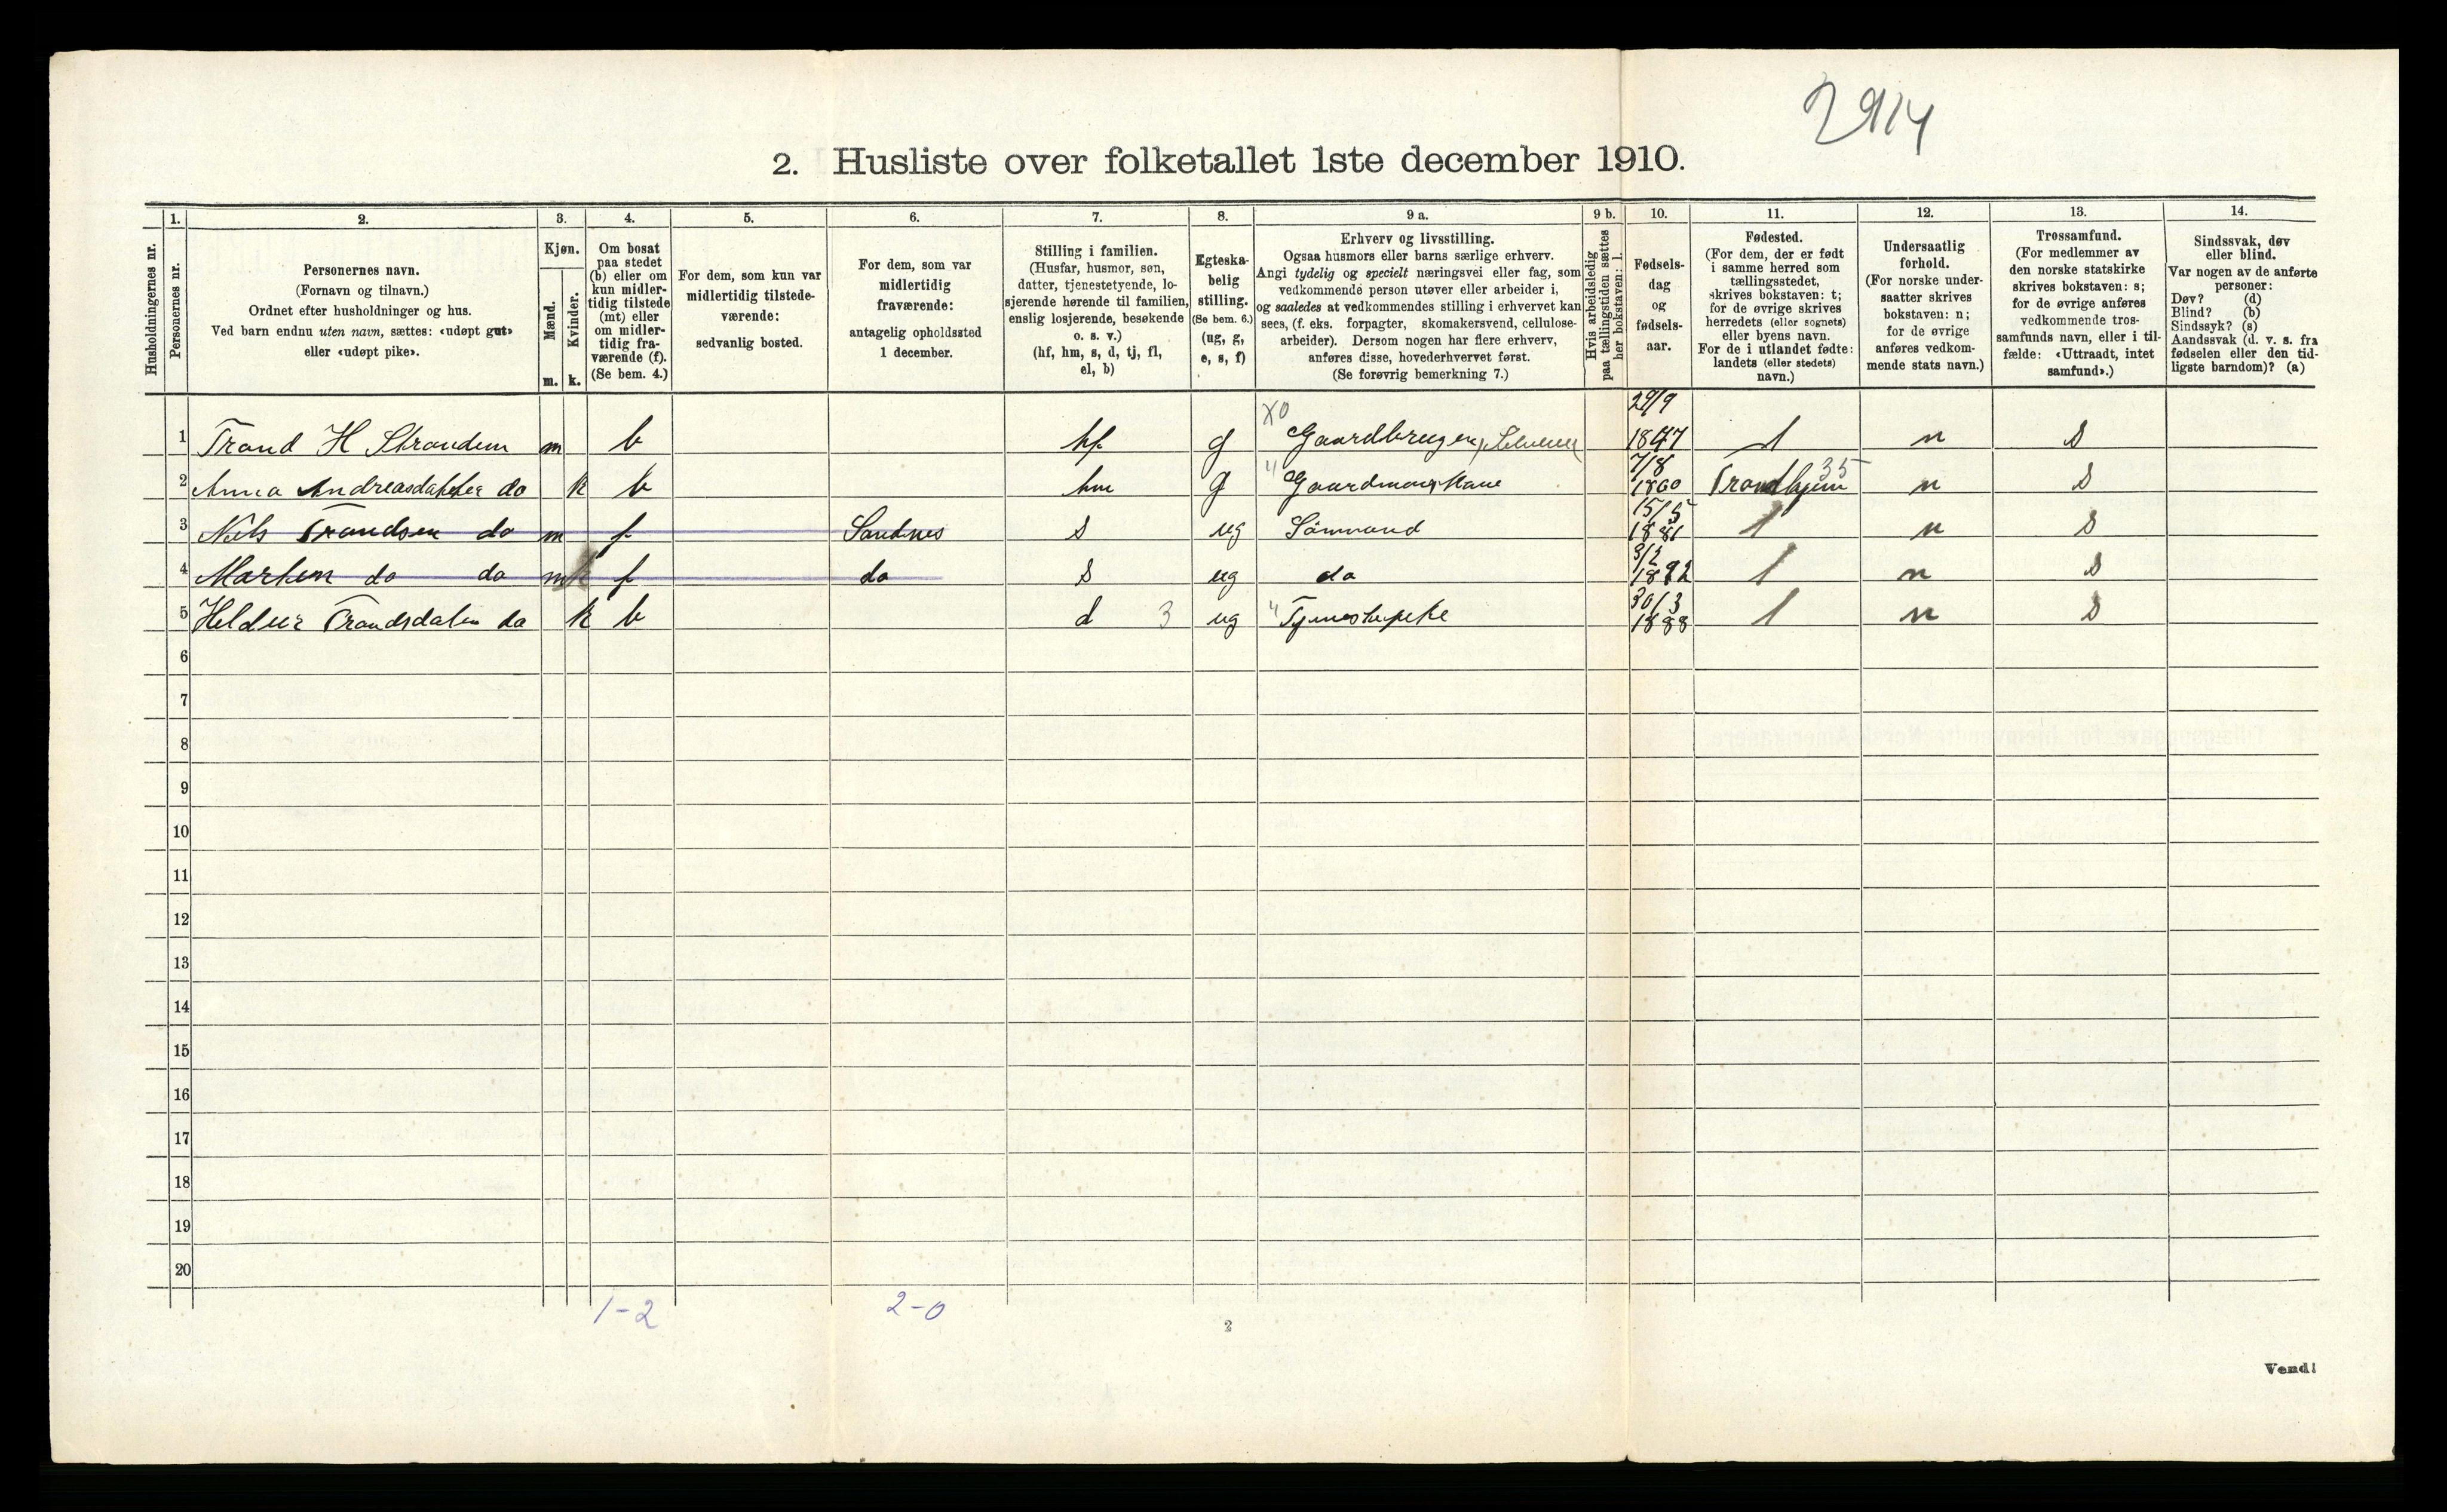 2914
2. Husliste over folketallet 1ste december 1910.
Husholdningernes nr.
1.
Personernes nr.
2.
Personernes navn.
(Fornavn og tilnavn.)
Ordnet efter husholdninger og hus.
Ved barn endnu uten navn, sættes: «udøpt gut»
eller «udøpt pike».
3.
Kjøn.
Mænd.
Kvinder.
m. k.
4.
Om bosat
paa stedet
(b) eller om
kun midler-
tidig tilstede
(mt) eller
om midler-
tidig fra-
værende (f).
(Se bem. 4.)
5.
For dem, som kun var
midlertidig tilstede-
værende:
sedvanlig bosted.
6.
For dem, som var
midlertidig
fraværende:
antagelig opholdssted
1 december.
7.
Stilling i familien.
(Husfar, husmor, søn,
datter, tjenestetyende, lo-
sjerende hørende til familien,
enslig losjerende, besøkende
o. s. v.)
(hf, hm, s, d, tj, fl,
el, b)
8.
Egteska-
belig
stilling.
(Se bem. 6.)
(ug, g,
e, s, f)
9 a.
Erhverv og livsstilling.
Ogsaa husmors eller barns særlige erhverv.
Angi tydelig og specielt næringsvei eller fag, som
vedkommende person utøver eller arbeider i,
og saaledes at vedkommendes stilling i erhvervet kan
sees, (f. eks. forpagter, skomakersvend, cellulose-
arbeider). Dersom nogen har flere erhverv,
anføres disse, hovederhvervet først.
(Se forøvrig bemerkning 7.)
9 b.
Hvis arbeidsledig
paa tællingstiden sættes
her bokstaven: l.
10.
Fødsels-
dag
og
fødsels-
aar.
11.
Fødested.
(For dem, der er født
i samme herred som
tællingsstedet,
skrives bokstaven: t;
for de øvrige skrives
herredets (eller sognets)
eller byens navn.
For de i utlandet fødte:
landets (eller stedets)
navn.)
12.
Undersaatlig
forhold.
(For norske under-
saatter skrives
bokstaven: n;
for de øvrige
anføres vedkom-
mende stats navn.)
13.
Trossamfund.
(For medlemmer av
den norske statskirke
skrives bokstaven: s;
for de øvrige anføres
vedkommende tros-
samfunds navn, eller i til-
fælde: «Uttraadt, intet
samfund».)
14.
Sindssvak, døv
eller blind.
Var nogen av de anførte
personer:
Døv? (d)
Blind? (b)
Sindssyk? (s)
Aandssvak (d. v. s. fra
fødselen eller den tid-
ligste barndom)? (a)
X0 29/9
1 Trand H Strandem m b hf g Gaardbruger 1847 t n s
7/8 35
2 Anna Andreasdatter do k b hm g " 1860 Trondhjem n s
15/5
3 Nils Trandsen do m f Sandnes s ug Sømand 1881 t n s
3/2
4 Morten do do m f do s ug do 1892 t n s
30/3
5 Trandsdatter do k b d 3 ug " Tjenestepike 1888 t n s
6
7
8
9
10
11
12
13
14
15
16
17
18
19
20
1-2 2-0
2
Vend!